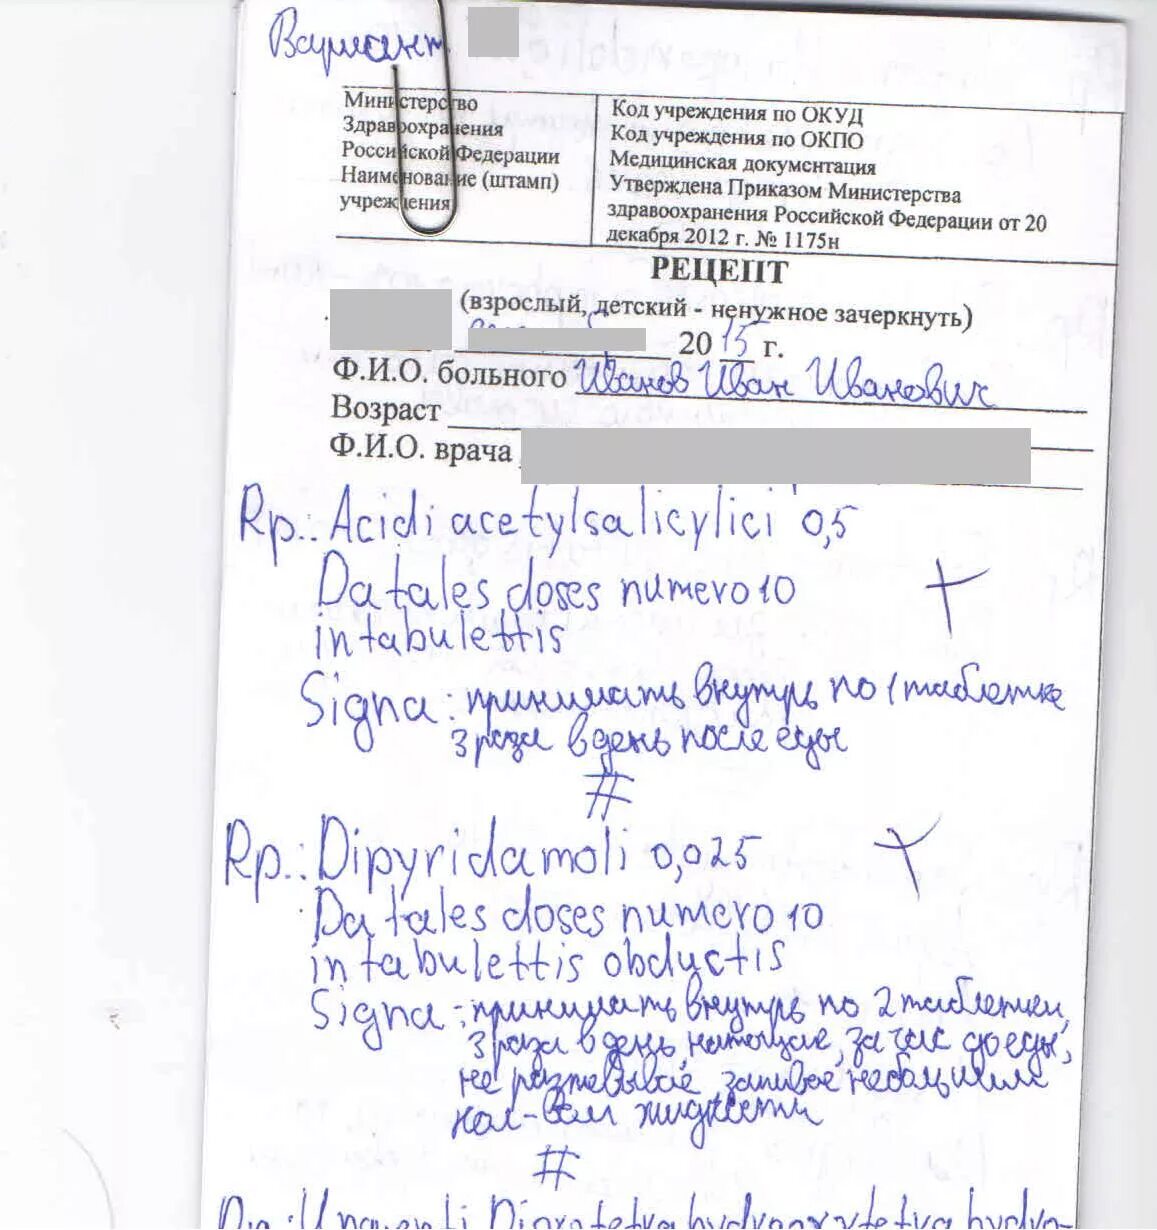 Вариант
Министерство
Здравоохранения
Российской Федерации
Наименование (штамп)
учреждения
Код учреждения по ОКУД
Код учреждения по ОКПО
Медицинская документация
Утверждена Приказом Министерства
здравоохранения Российской Федерации от 20
декабря 2012 г. № 1175н
РЕЦЕПТ
(взрослый, детский - ненужное зачеркнуть)
2015 г.
Ф.И.О. больного Иванов Иван Иванович
Возраст
Ф.И.О. врача
Rp.: Acidi acetylsalicylici 0,5
Da tales doses numero 10
in tabulettis
Signa: принимать внутрь по 1 таблетке
3 раза в день после еды
#
Rp.: Dipyridamoli 0,025
Da tales doses numero 10
in tabulettis obductis
Signa: принимать внутрь по 2 таблетки,
3 раза в день, натощак, за час до еды,
не разжевывая, запивая небольшим
кол-вом жидкости
#
Rp.: Unguenti Dioxotetrahydroxytetrahydro-